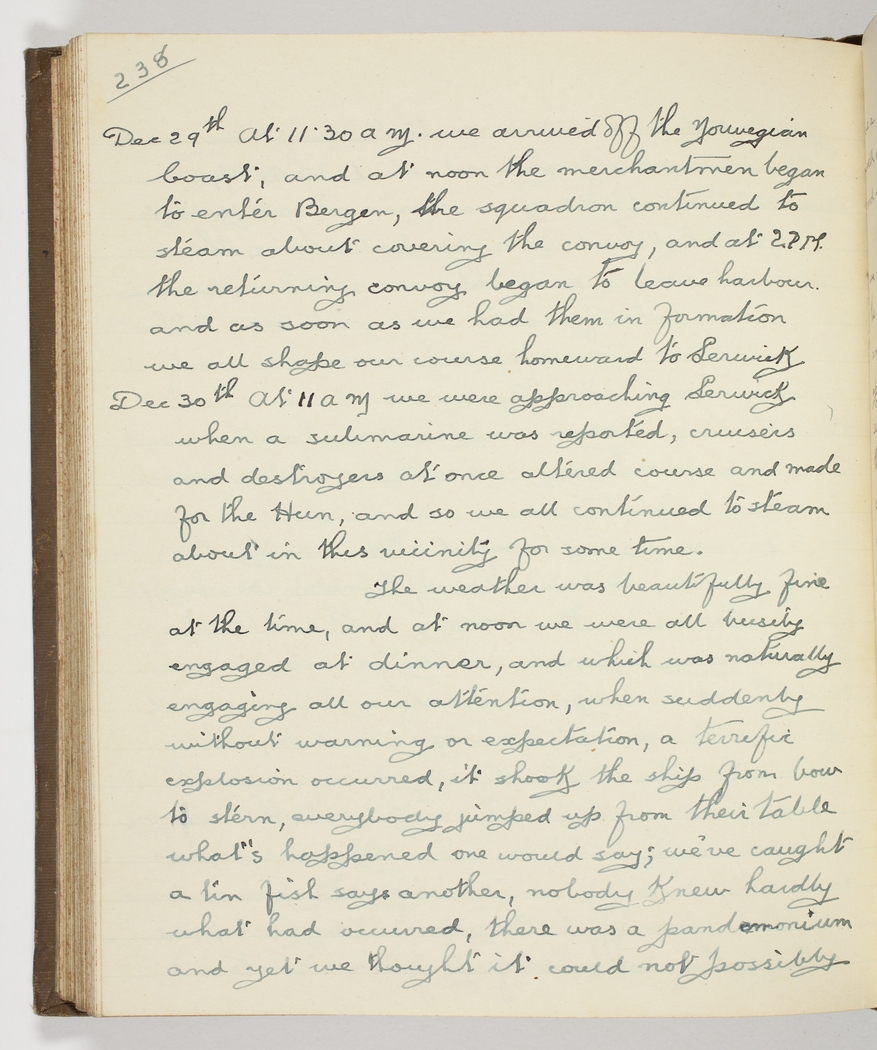 238
Dec 29th At 11.30 a m. we arrived off the Norwegian
Coast, and at noon the merchantmen began
to enter Bergen, the squadron continued to
steam about covering the convoy, and at 2.P.M.
the returning convoy began to leave harbour.
and as soon as we had them in formation
we all shape our course homeward to Lerwick
Dec 30th At 11 a m we were approaching Lerwick
when a submarine was reported, cruisers
and destroyers at once altered course and made
for the Hun, and so we all continued to steam
about in this vicinity for some time.
The weather was beautifully fine
at the time, and at noon we were all busily
engaged at dinner, and which was naturally
engaging all our attention, when suddenly
without warning or expectation, a terrific
explosion occurred, it shook the ship from bow
to stern, everybody jumped up from their table
what's happened one would say; we've caught
a tin fish says another, nobody knew hardly
what had occurred, there was a pandemonium
and yet we thought it could not possibly